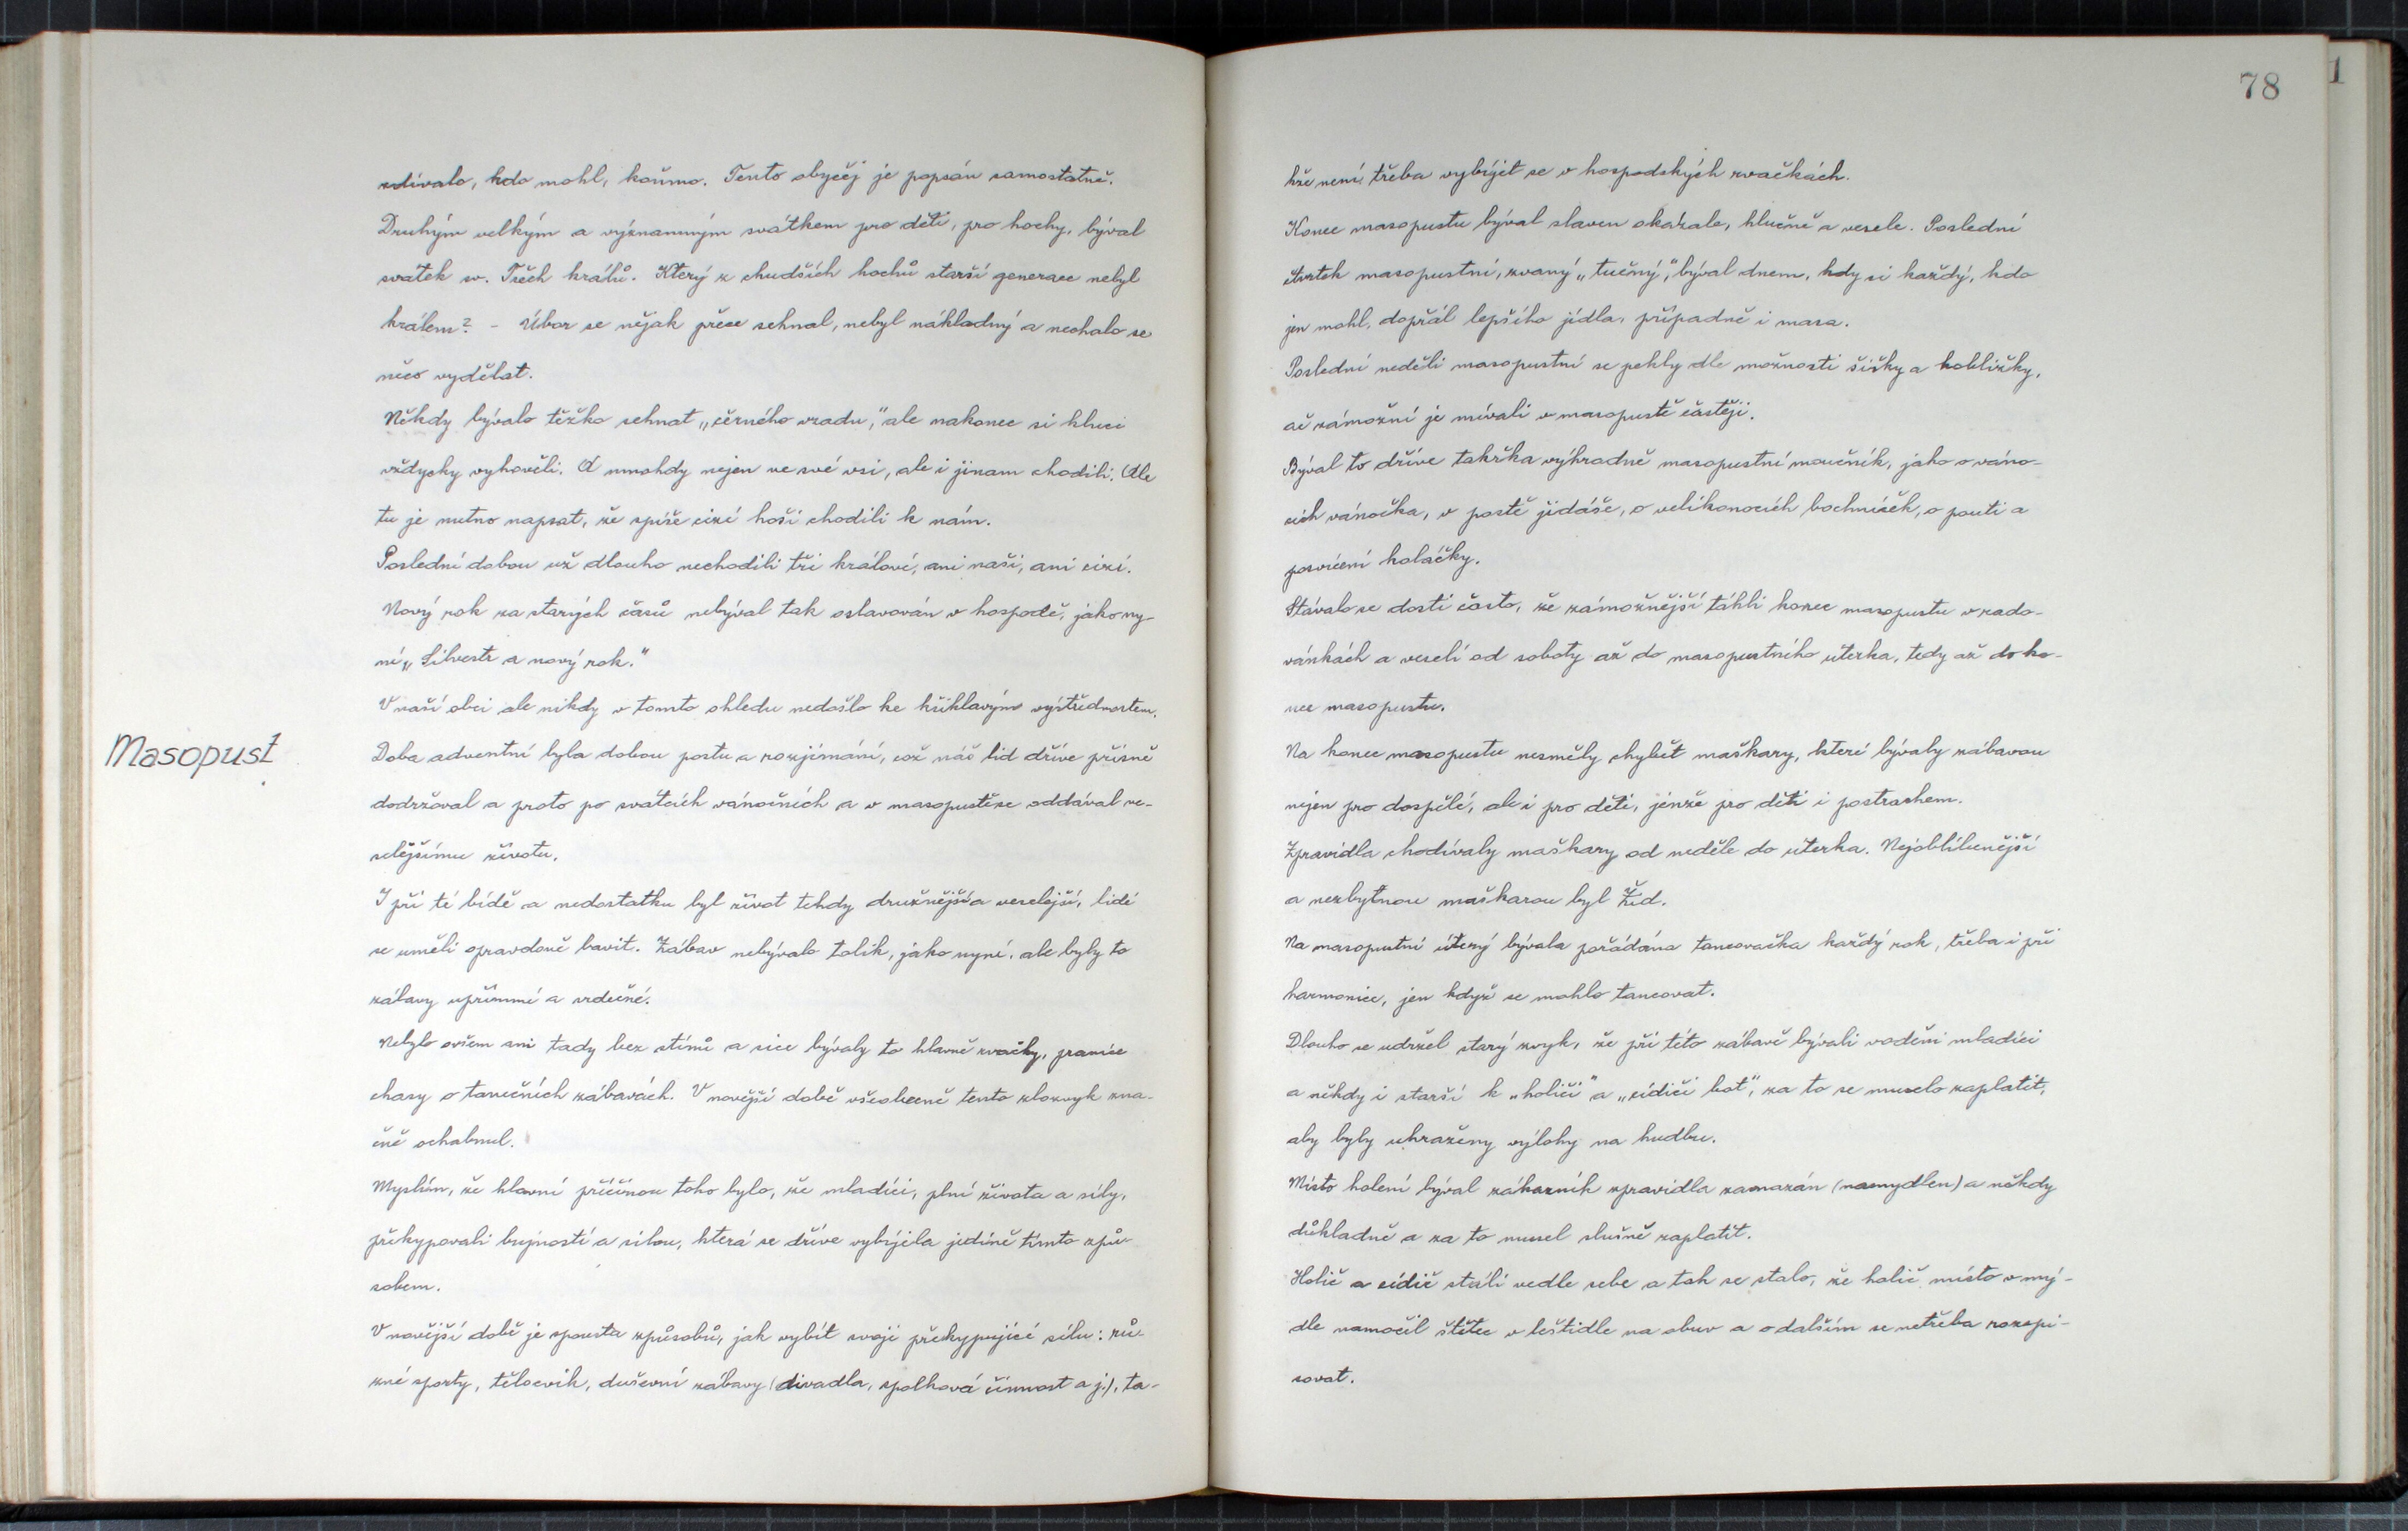 zdívalo, kdo mohl, koňmo. Tento obyčěj je popsán samostatně.
Druhým velkým a významným svátkem pro děti, pro hochy, býval
svátek sv. Třech králů. Který z chudších hochů starší generace nebyl
králem? - Úbor se nějak přece sehnal, nebyl nákladný a nechalo se
něco vydělat.
Někdy bývalo těžko sehnat „černého vzadu", ale nakonec si kluci
vždycky vyhověli. A mnohdy nejen ve své vsi, ale i jinam chodili. Ale
tu je nutno napsat, že spíše cizí hoši chodili k nám.
Poslední dobou už dlouho nechodili tři králové, ani naši, ani cizí.
Nový rok za starých časů nebýval tak oslavován v hospodě, jako ny-
ní „Silvestr a nový rok."
V naší obci ale nikdy v tomto ohledu nedošlo ke křiklavým výstřednostem.
Masopust
Doba adventní byla dobou postu a rozjímání, což náš lid dříve přísně
dodržoval a proto po svátcích vánočních a v masopustě se oddával ve-
selejšímu životu.
I při té bídě a nedostatku byl život tehdy družnější a veselejší, lidé
se uměli opravdově bavit. Zábav nebývalo tolik, jako nyní, ale byly to
zábavy upřímné a srdečné.
Nebylo ovšem ani tady bez stínů a sice bývaly to hlavně rvačky, pranice
chasy o tanečních zábavách. V novější době všeobecně tento zlozvyk zna-
čně ochabnul.
Myslím, že hlavní příčinou toho bylo, že mladíci, plní života a síly,
překypovali bujností a silou, která se dříve vybíjela jedině tímto způ-
sobem.
V novější době je spousta způsobů, jak vybít svoji překypující sílu: rů-
zné sporty, tělocvik, duševní zábavy (divadla, spolková činnost a j.), ta-
78
kže není třeba vybíjet se v hospodských rvačkách.
Konec masopustu býval slaven okázale, hlučně a vesele. Poslední
čtvrtek masopustní, zvaný „tučný", býval dnem, kdy si každý, kdo
jen mohl, dopřál lepšího jídla, případně i masa.
Poslední neděli masopustní se pekly dle možnosti šišky a kobližky,
ač zámožní je mívali v masopustě častěji.
Býval to dříve takřka výhradně masopustní moučník, jako o váno-
cích vánočka, v postě jidáše, o velikonocích bochníček, o pouti a
posvícení koláčky.
Stávalo se dosti často, že zámožnější táhli konec masopustu v rado-
vánkách a veselí od soboty až do masopustního úterka, tedy až do ko-
nce masopustu.
Na konec masopustu nesměly chybět maškary, které bývaly zábavou
nejen pro dospělé, ale i pro děti, jenže pro děti i postrachem.
Zpravidla chodívaly maškary od neděle do úterka. Nejoblíbenější
a nezbytnou maškarou byl Žid.
Na masopustní úterý bývala pořádána tancovačka každý rok, třeba i při
harmonice, jen když se mohlo tancovat.
Dlouho se udržel starý zvyk, že při této zábavě bývali voděni mladíci
a někdy i starší k „holiči" a „cídiči bot", za to se muselo zaplatit,
aby byly uhrazeny výlohy na hudbu.
Místo holení býval zákazník zpravidla zamazán (namydlen) a někdy
důkladně a za to musel slušně zaplatit.
Holič a cídič stáli vedle sebe a tak se stalo, že holič místo v mý-
dle namočil štětec v leštidle na obuv a o dalším se netřeba rozepi-
sovat.